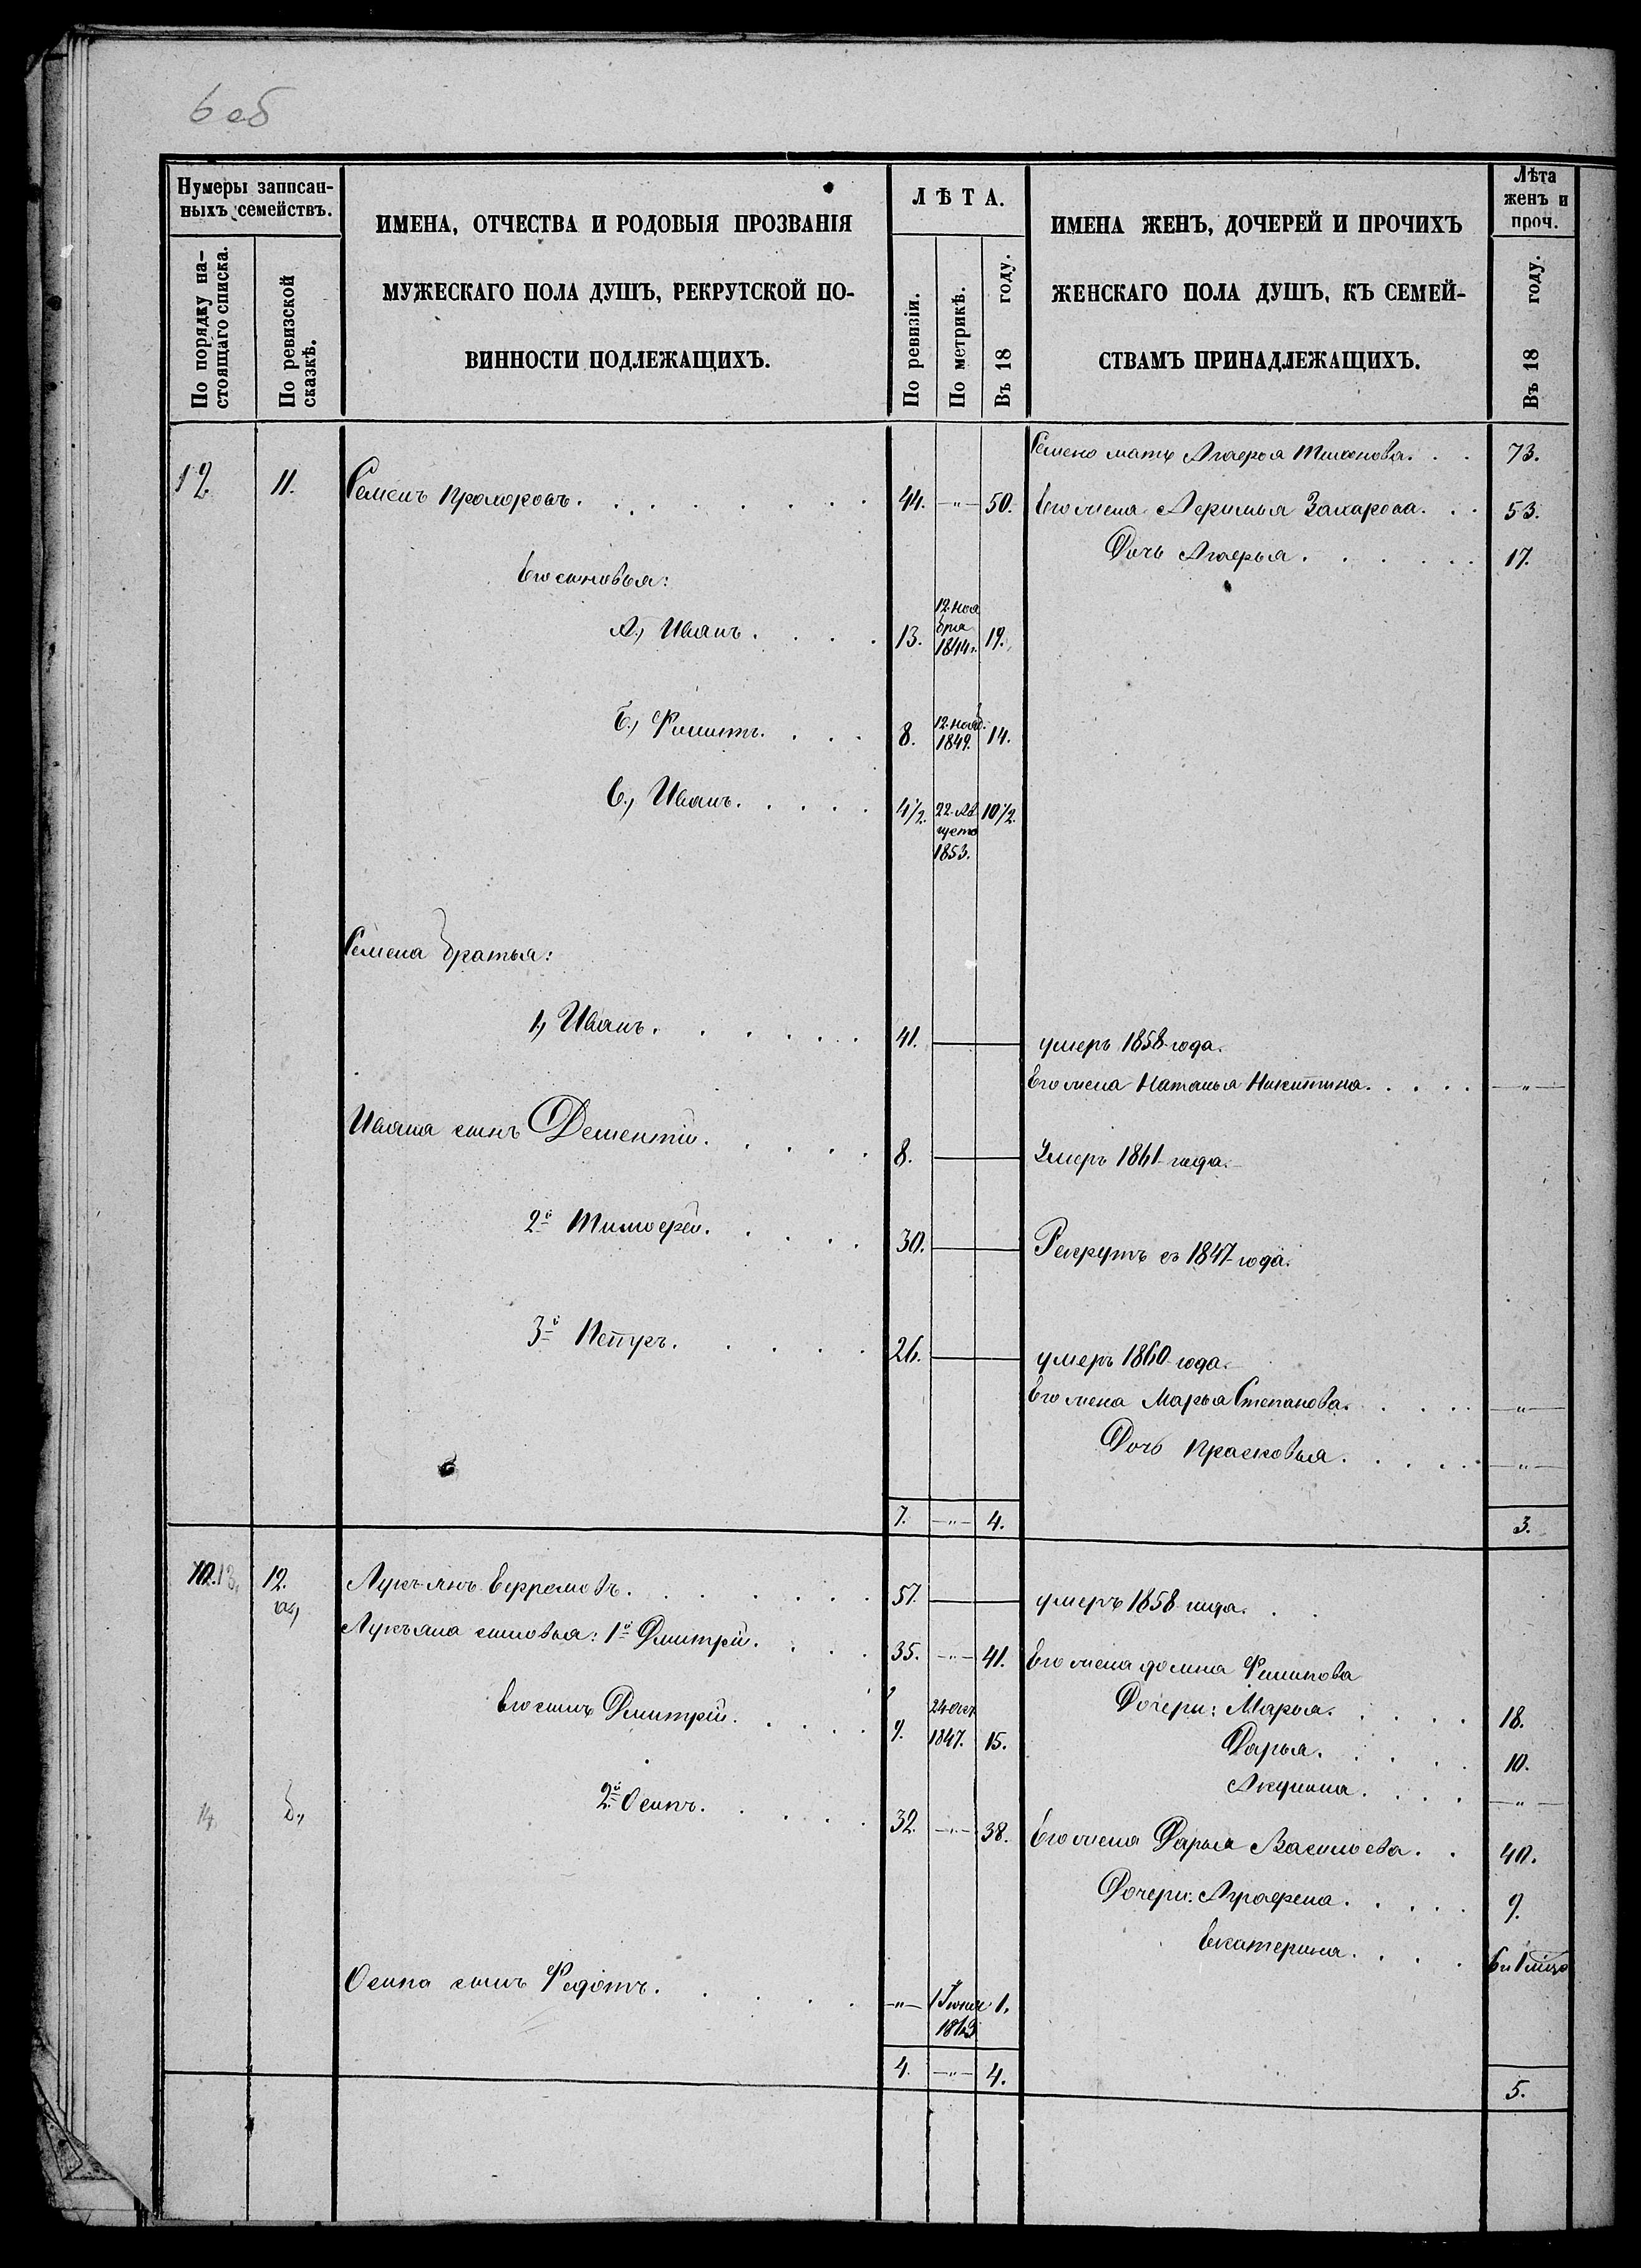 6 об
Нумеры записан-
ныхъ семействъ.
По порядку на-
стоящаго списка.
По ревизской
сказкѣ.
ИМЕНА, ОТЧЕСТВА И РОДОВЫЯ ПРОЗВАНІЯ
МУЖЕСКАГО ПОЛА ДУШЪ, РЕКРУТСКОЙ ПО-
ВИННОСТИ ПОДЛЕЖАЩИХЪ.
ЛѢТА.
По ревизіи.
По метрикѣ.
Въ 18 году.
ИМЕНА ЖЕНЪ, ДОЧЕРЕЙ И ПРОЧИХЪ
ЖЕНСКАГО ПОЛА ДУШЪ, КЪ СЕМЕЙ-
СТВАМЪ ПРИНАДЛЕЖАЩИХЪ.
Лѣта
женъ и
проч.
Въ 18 году.
мать Агафья 73.
12 11. Семенъ Прохоровъ. 44. —"— 50. Его жена Захарова. 53.
Дочь Агафья. 17.
Его сыновья:
А., Иванъ. 13. 12. Ноя
бря
1844. 19.
Б., 8. 12. Нояб.
1849. 14.
В., Иванъ. 4½. 22. Ав
густа
1853. 10½.
Семена братья:
1., Иванъ. 41. умеръ 1858 года.
Его жена Наталья Никитина. —"—
Ивана сынъ Дементій. 8. Умеръ 1861 года.
2й Тимофей. 30. Рекрутъ съ 1847 года.
3й Петръ. 26. умеръ 1860 года.
Его жена Марья Степанова. —"—
Дочь Прасковья. —"—
7. —"— 4. 3.
13. 12. Лукьянъ Ефремовъ. 57. умеръ 1858 года.
а., Лукьяна сыновья: 1й Дмитрій. 35. —"— 41. Его жена Домна
Его сынъ Дмитрій. 9. 24 Окт.
1847. 15. Дочери: Марья. 18.
Дарья. 10.
Акулина. —"—
14 б., 2й Осипъ. 32. —"— 38. Его жена Дарья Васильева. 40.
Дочери: Аграфена. 9.
Екатерина.
Осипа сынъ Федотъ. —"— 1 1.
1863
4. —"— 4. 5.